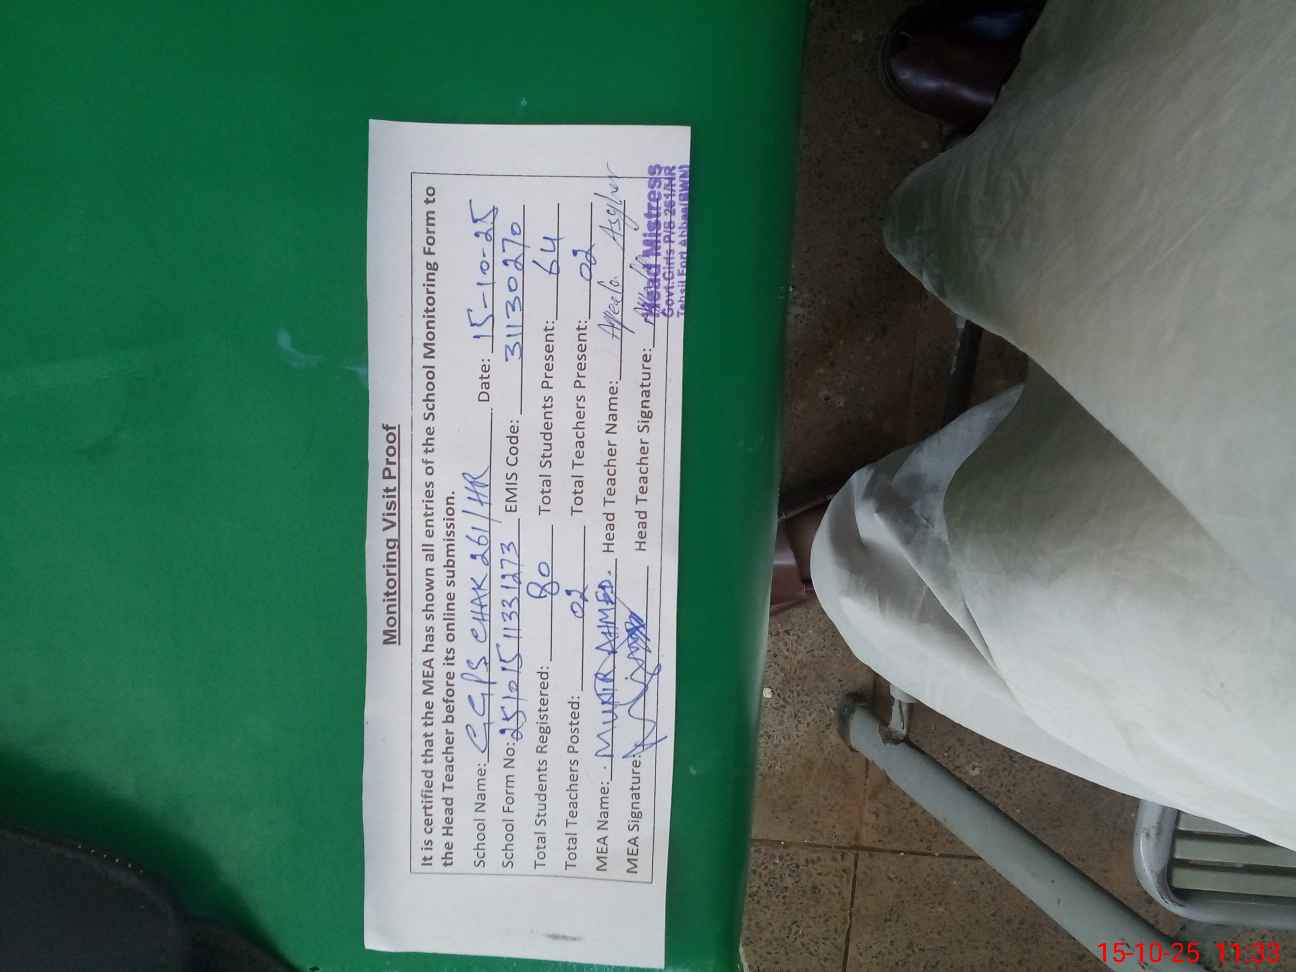 Monitoring Visit Proof
It is certified that the MEA has shown all entries of the School Monitoring Form to
the Head Teacher before its online submission.
School Name: GGPS CHAK 261/HR Date: 15-10-25
School Form No: 25101511331273 EMIS Code: 31130270
Total Students Registered: 80 Total Students Present: 64
Total Teachers Posted: 02 Total Teachers Present: 02
MEA Name: MUNIR AHMED. Head Teacher Name: Asghar
MEA Signature: Head Teacher Signature:
Head Mistress
Govt.Girls P/S 261/HR
Tehsil Fort Abbas(BWN)
15-10-25 11:33